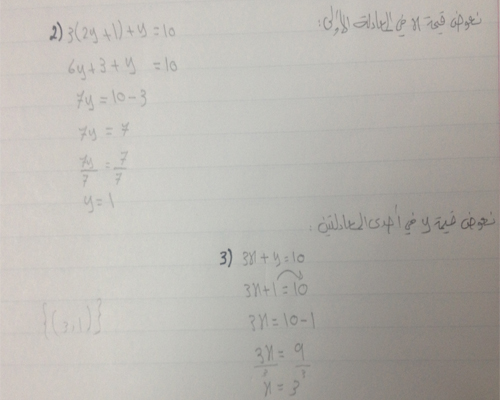 نعوض قيمة x في المعادلة الأولى:
2) 3(2y+1)+y=10
6y+3+y =10
7y=10-3
7y = 7
7y/7 = 7/7
y=1
نعوض قيمة y في أحدى المعادلتين:
3) 3x+y=10
3x+1=10
3x=10-1
3x/3 = 9/3
x=3
{(3,1)}